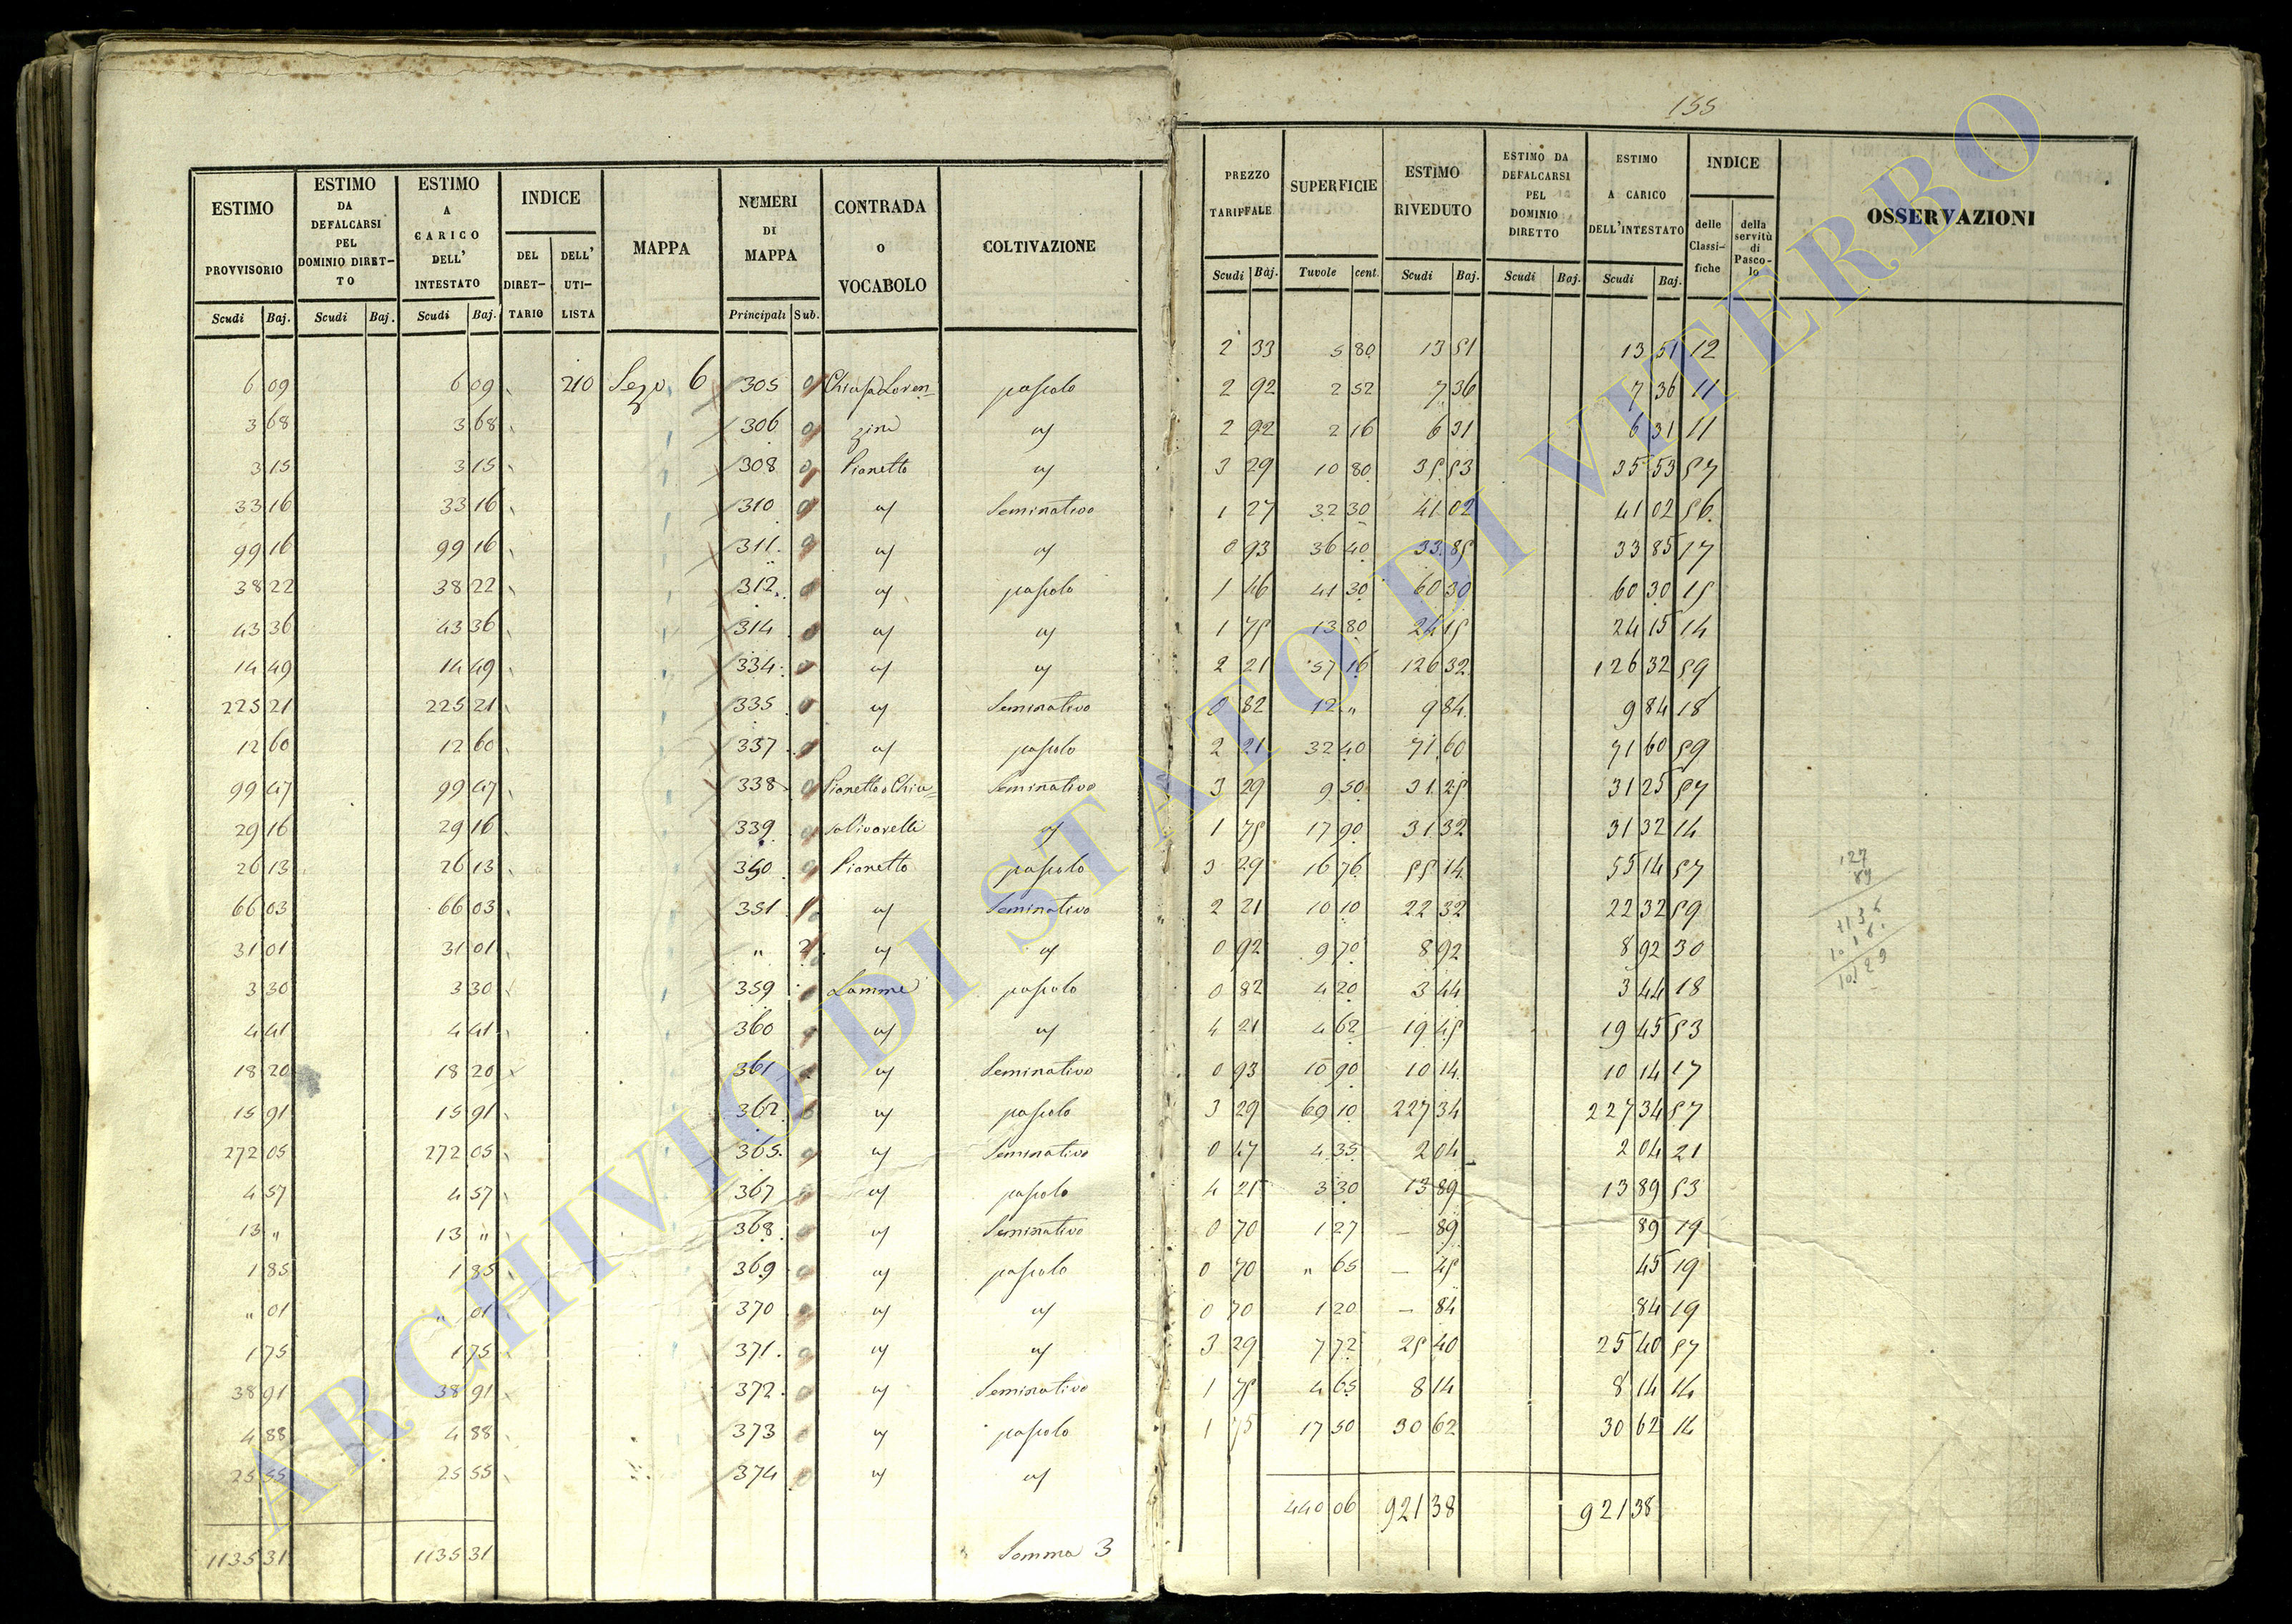 155
ESTIMO PROVVISORIO
ESTIMO DA DEFALCARSI PEL DOMINIO DIRETTO
ESTIMO A CARICO DELL' INTESTATO
INDICE
DEL DIRETTARIO
DELL' UTILISTA
MAPPA
NUMERI DI MAPPA
CONTRADA o VOCABOLO
COLTIVAZIONE
Scudi Baj. Scudi Baj. Scudi Baj. Principali Sub.
6 09 6 09 210 Sezo 6 305 Chiusa Loren= pascolo
3 68 3 68 306 zini "
3 15 3 15 308 Pianetto "
33 16 33 16 310 " Seminativo
99 16 99 16 311 " "
38 22 38 22 312 " pascolo
43 36 43 36 314 " "
14 49 14 49 334 " "
225 21 225 21 335 " Seminativo
12 60 12 60 337 " pascolo
99 47 99 47 338 Pianetto o Chiu= Seminativo
29 16 29 16 339 "
26 13 26 13 350 Pianetto pascolo
66 03 66 03 351 1 " Seminativo
31 01 31 01 " 2 " "
3 30 3 30 359 Lamme pascolo
4 41 4 41 360 " "
18 20 18 20 361 " Seminativo
15 91 15 91 362 " pascolo
272 05 272 05 365 " Seminativo
4 57 4 57 367 " pascolo
13 " 13 " 368 " Seminativo
1 85 1 85 369 " pascolo
" 01 " 01 370 " "
1 75 1 75 371 " "
38 91 38 91 372 " Seminativo
4 88 4 88 373 " pascolo
25 55 25 55 374 " "
1135 31 1135 31 Somma 3
PREZZO TARIFFALE
SUPERFICIE
ESTIMO RIVEDUTO
ESTIMO DA DEFALCARSI PEL DOMINIO DIRETTO
ESTIMO A CARICO DELL'INTESTATO
INDICE
delle Classifiche
della servitù di Pascolo
OSSERVAZIONI
Scudi Baj. Tuvole cent. Scudi Baj. Scudi Baj. Scudi Baj.
2 33 5 80 13 51 13 51 12
2 92 2 52 7 36 7 36 11
2 92 2 16 6 31 6 31 11
3 29 10 80 35 53 35 53 57
1 27 32 30 41 02 41 02 56
0 93 36 40 33 85 33 85 17
1 46 41 30 60 30 60 30 15
1 75 13 80 24 15 24 15 14
2 21 57 16 126 32 126 32 59
0 82 12 " 9 84 9 84 18
2 21 32 40 71 60 71 60 59
3 29 9 50 31 25 31 25 57
1 75 17 90 31 32 31 32 14
3 29 16 76 55 14 55 14 57
2 21 10 10 22 32 22 32 59
0 92 9 70 8 92 8 92 30
0 82 4 20 3 44 3 44 18
4 21 4 62 19 45 19 45 53
0 93 10 90 10 14 10 14 17
3 29 69 10 227 34 227 34 57
0 47 4 35 2 04 2 04 21
4 21 3 30 13 89 13 89 53
0 70 1 27 — 89 89 19
0 70 " 65 — 45 45 19
0 70 1 20 — 84 84 19
3 29 7 72 25 40 25 40 57
1 75 4 65 8 14 8 14 14
1 75 17 50 30 62 30 62 14
440 06 921 38 921 38
ARCHIVIO DI STATO DI VITERBO